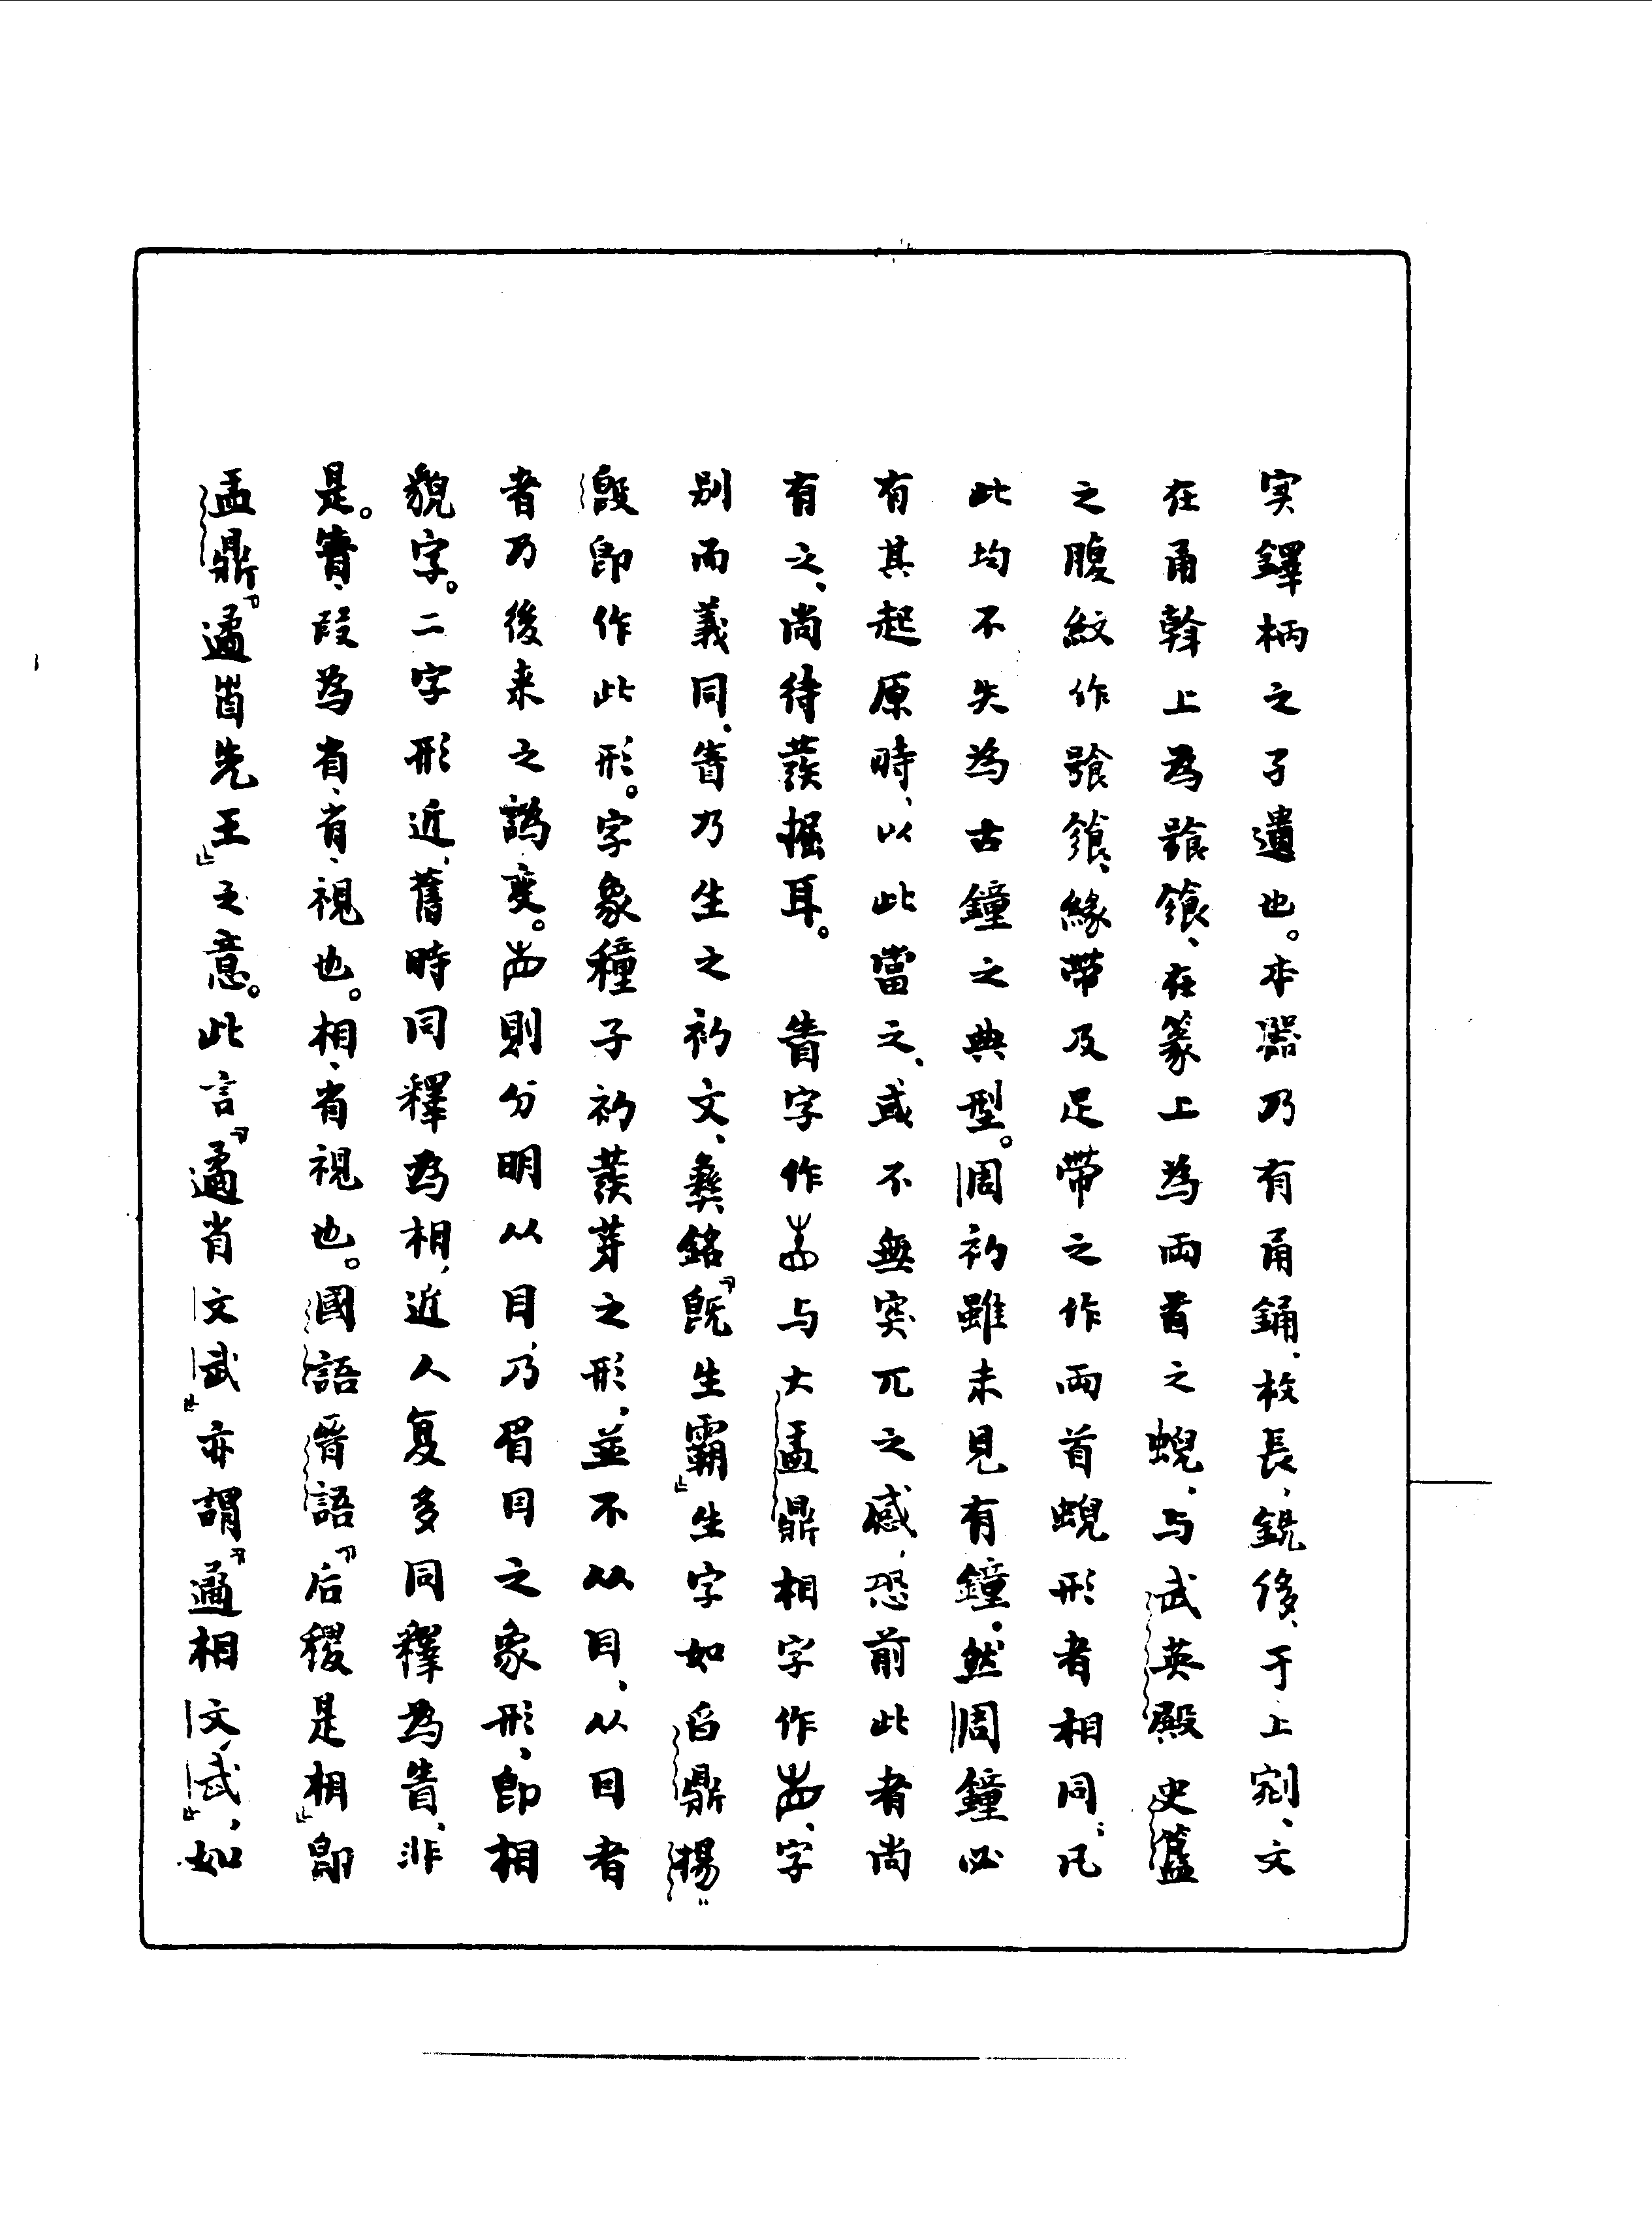 实鐸柄之孑遺也。本器乃有甬鋪、枚長、銑侈、于上剜、文
在甬斡上為饕餮、在篆上為兩首之蜺、与武英殿史𥂴
之腹紋作饕餮、緣帶及足帶之作兩首蜺形者相同、凡
此均不失為古鐘之典型。周初雖未見有鐘、然周鐘必
有其起原時、以此當之、或不無突兀之感、恐前此者尚
有之、尚待發掘耳。 眚字作與大盂鼎相字作、字
別而義同、眚乃生之初文、彝銘『既生霸』生字如舀鼎揚
𣪘即作此形。字象種子初發芽之形、並不从目、从目者
者乃後来之譌变。則分明从目、乃眉目之象形、即相
貌字。二字形近、舊時同釋為相、近人复多同釋為眚、非
是。眚、叚為省、省、視也。相、省視也。國語晉語『后稷是相』即
盂鼎『遹省先王』之意。此言『遹省文武』亦謂『遹相文、武』、如